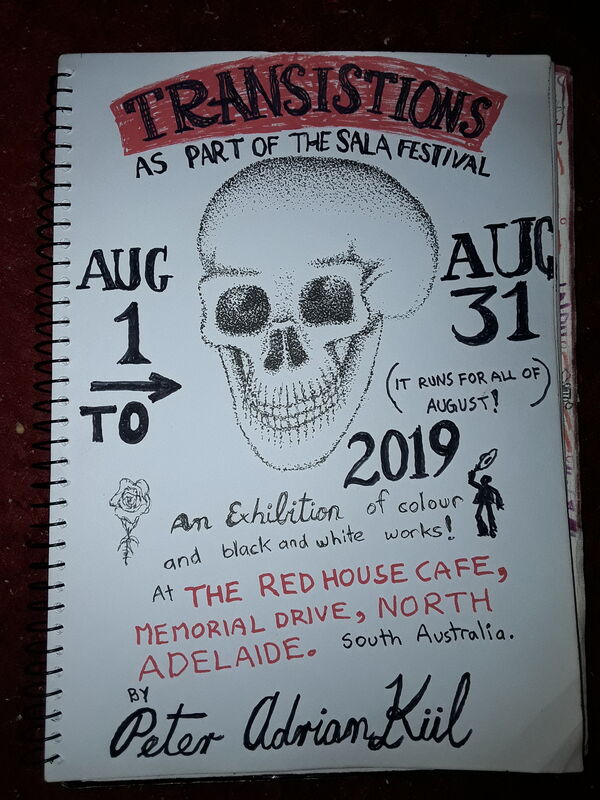 TRANSISTIONS
AS PART OF THE SALA FESTIVAL
AUG
1
TO
AUG
31
(IT RUNS FOR ALL OF
AUGUST!)
2019
An Exhibition of colour
and black and white works!
At THE RED HOUSE CAFE,
MEMORIAL DRIVE, NORTH
ADELAIDE. South Australia.
BY
Peter Adrian Küil